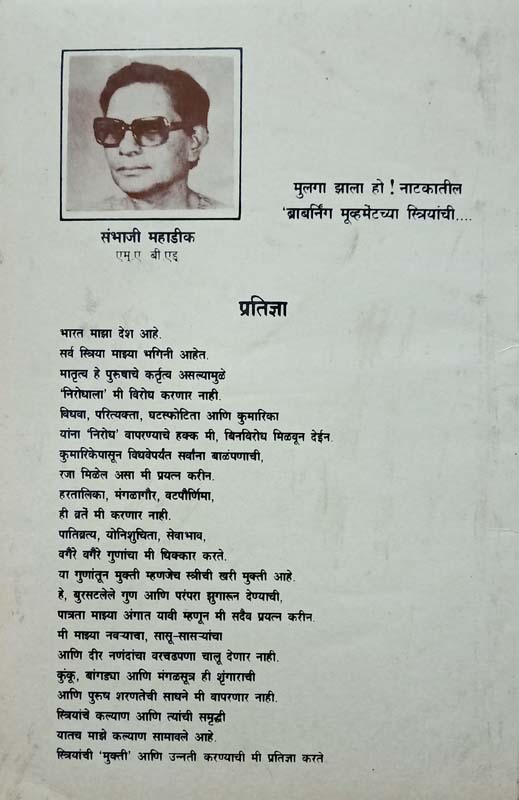 संभाजी महाडीक
एम्.ए बी एड्
मुलगा झाला हो ! नाटकातील
'ब्राबर्निंग मूव्हमेंटच्या स्त्रियांची....
प्रतिज्ञा
भारत माझा देश आहे.
सर्व स्त्रिया माझ्या भगिनी आहेत.
मातृत्व हे पुरुषाचे कर्तृत्व असल्यामुळे
'निरोधाला' मी विरोध करणार नाही.
विधवा, परित्यक्ता, घटस्फोटिता आणि कुमारिका
यांना 'निरोध' वापरण्याचे हक्क मी, बिनविरोध मिळवून देईन.
कुमारिकेपासून विधवेपर्यंत सर्वांना बाळंपणाची,
रजा मिळेल असा मी प्रयत्न करीन.
हरतालिका, मंगळागौर, वटपौर्णिमा,
ही व्रतें मी करणार नाही.
पातिव्रत्य, योनिशुचिता, सेवाभाव,
वगैरे वगैरे गुणांचा मी धिक्कार करते.
या गुणांतून मुक्ती म्हणजेच स्त्रीची खरी मुक्ती आहे.
हे, बुरसटलेले गुण आणि परंपरा झुगारून देण्याची,
पात्रता माझ्या अंगात यावी म्हणून मी सदैव प्रयत्न करीन.
मी माझ्या नवऱ्याचा, सासू-सासऱ्यांचा
आणि दीर नणंदांचा वरचढपणा चालू देणार नाही.
कुंकू, बांगड्या आणि मंगळसूत्र ही शृंगाराची
आणि पुरुष शरणतेची साधने मी वापरणार नाही.
स्त्रियांचे कल्याण आणि त्यांची समृद्धी
यातच माझे कल्याण सामावले आहे.
स्त्रियांची 'मुक्ती' आणि उन्नती करण्याची मी प्रतिज्ञा करते